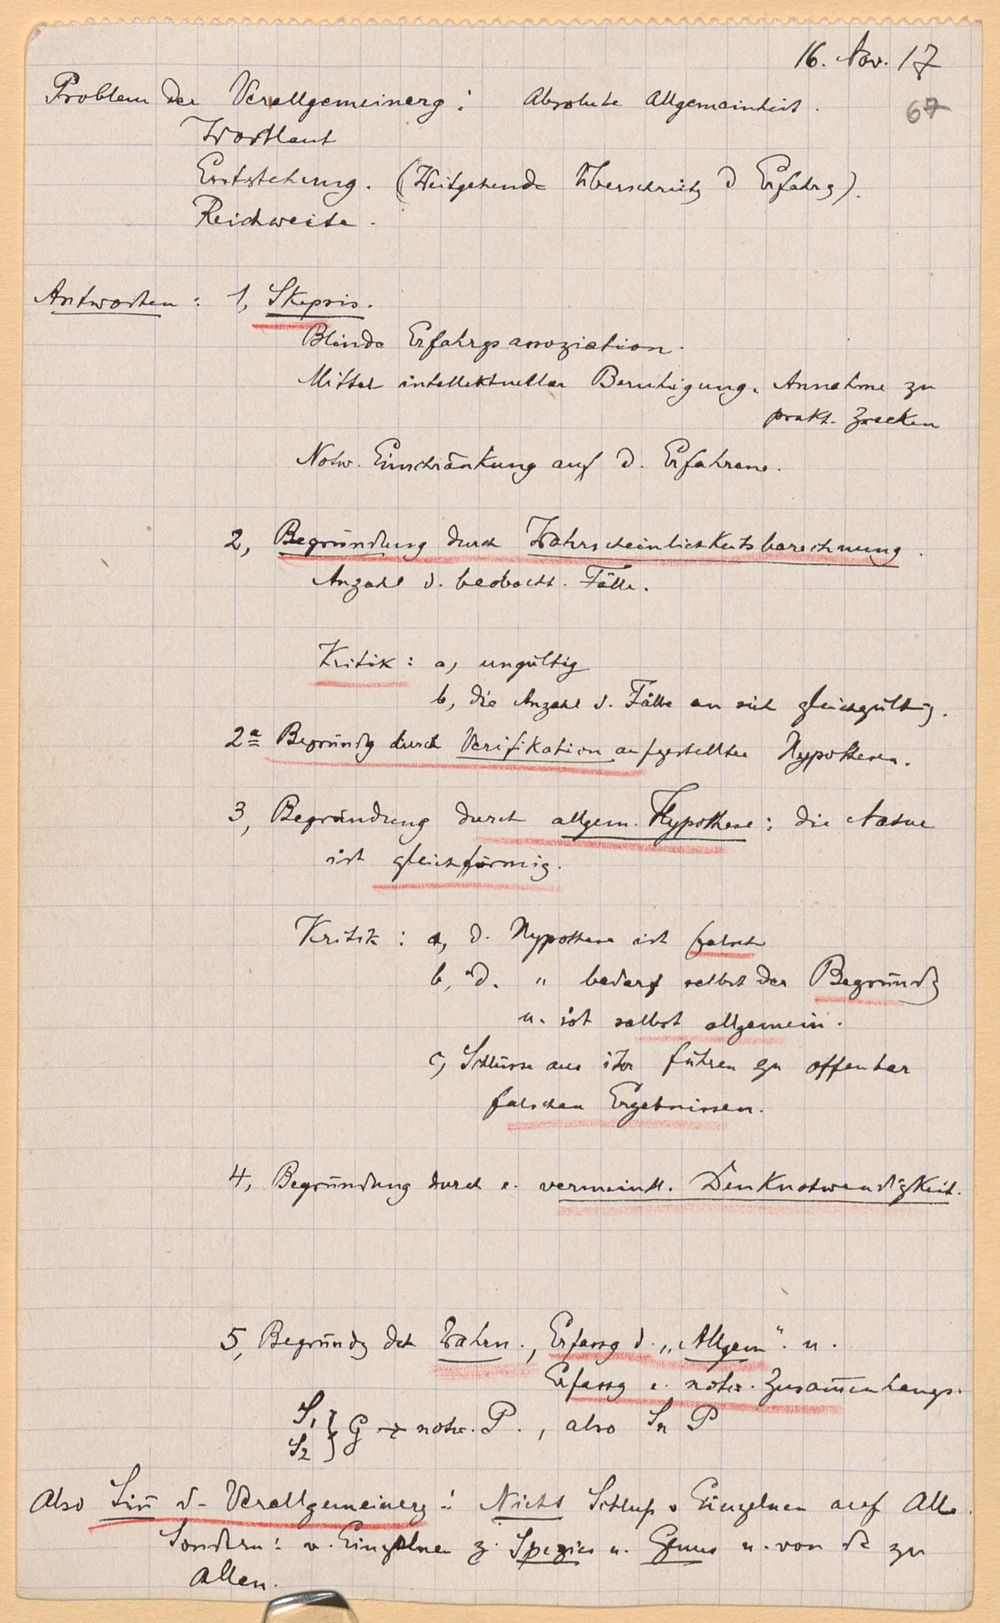 16. Nov. 17
67
Problem der Verallgemeinerg: Absolute Allgemeinheit.
Wortlaut
Entstehung. (Weitgehende Überschreitg d Erfahrg).
Reichweite.
Antworten: 1, Skepsis.
Blinde Erfahrgsassoziation.
Mittel intellektueller Beruhigung. Annahme zu
prakt. Zwecken
Notw. Einschränkung auf d. Erfahrene.
2, Begründung durch Wahrscheinlichkeitsberechnung.
Anzahl d. beobacht. Fälle.
Kritik: a, ungültig
b, die Anzahl d. Fälle an sich gleichgültig.
2a Begründg durch Verifikation aufgestellter Hypothesen.
3, Begründung durch allgem. Hypothese: die Natur
ist gleichförmig.
Kritik: a, d. Hypothese ist falsch
b, d. " bedarf selbst der Begründg
u. ist selbst allgemein.
c, Schlüsse aus ihr führen zu offenbar
falschen Ergebnissen.
4, Begründung durch e. vermeintl. Denknotwendigkeit.
5, Begründg dch Wahrn., Erfassg d. „Allgem". u.
Erfassg e. notw. Zusam̅enhangs.
S1 } G → notw. P., also Sn P
S2
Also Sin̅ d. Verallgemeinerg: Nicht Schluß v Einzelnen auf Alle.
Sondern: v. Einzelnen z. Spezies u. Genus u. von da zu
Allen.